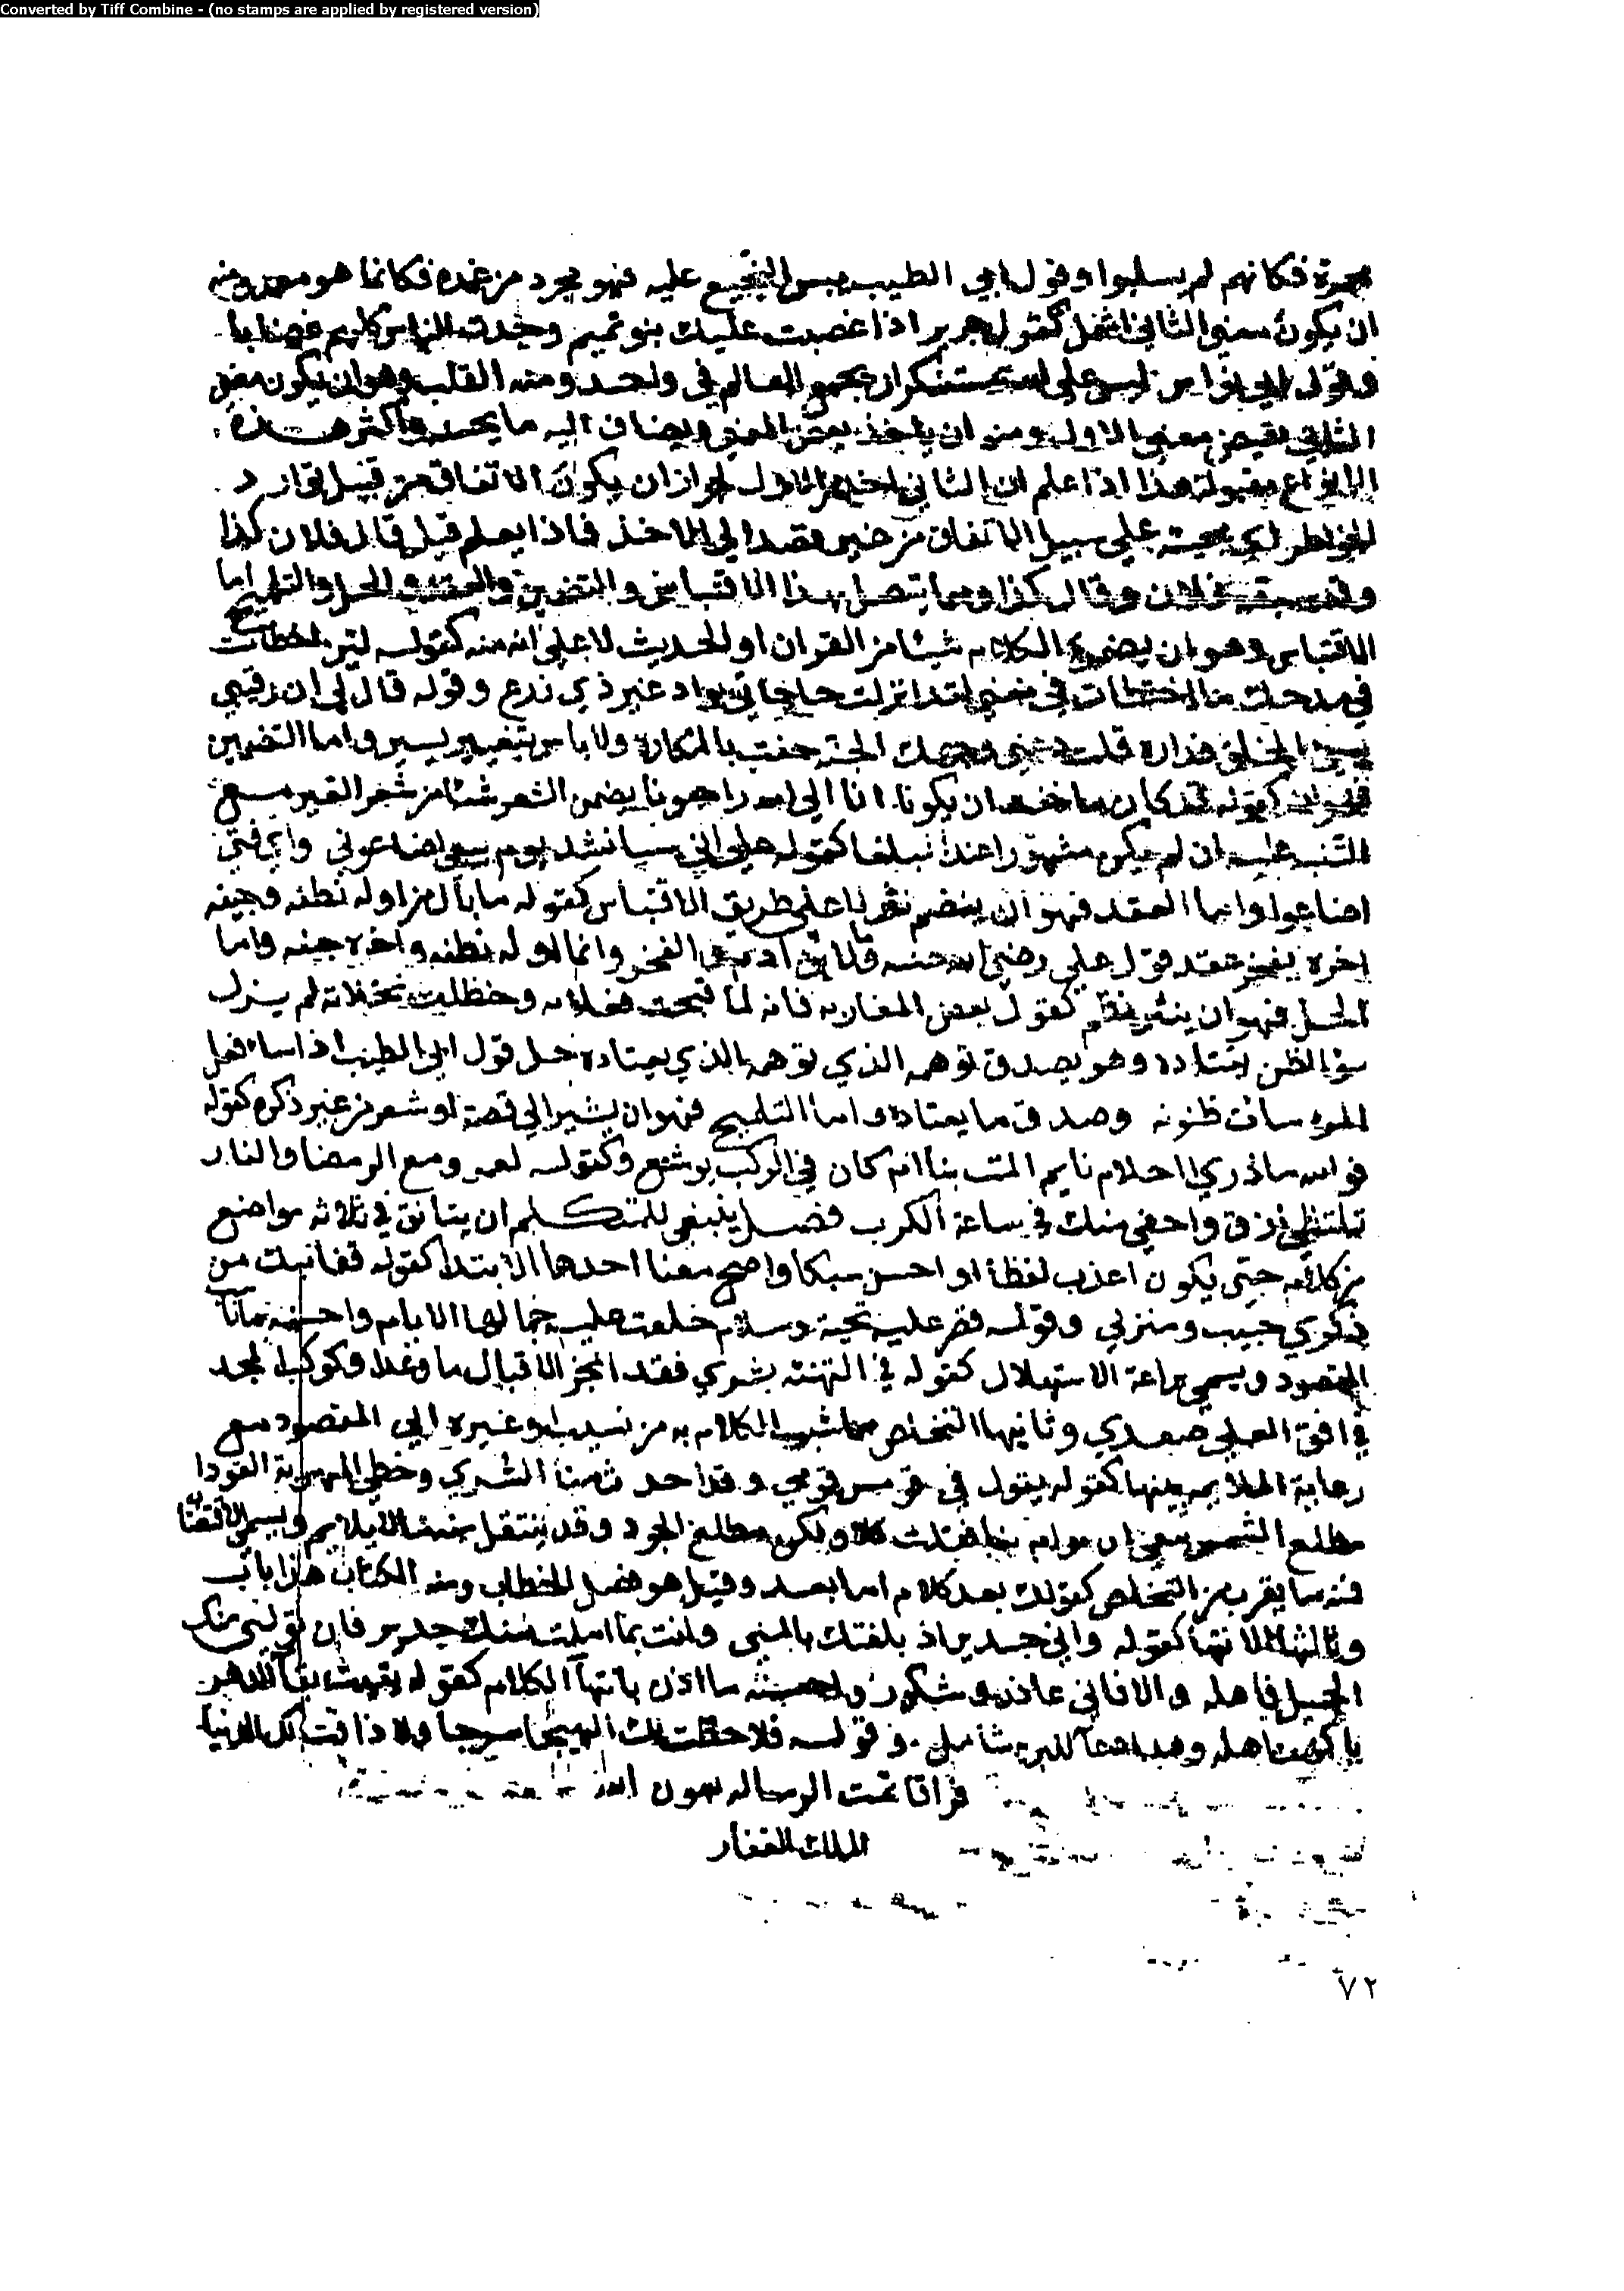 Converted by Tiff Combine - (no stamps are applied by registered version)
محمرة فكانهم لم يسلبوا وقول ابي الطيب يبس النجيع عليه فهو مجرد من غمده فكانما هو مغمد ومنه
ان يكون معني الثاني اشمل كقول جرير اذا غضبت عليك بنو تميم وجدت الناس كلهم غضابا
وقول ابي نواس ليس علي الله بمستنكر ان يجمع العالم في واحد ومنه القلب وهو ان يكون معني
الثاني نقيض معني الاول ومنه ان ياخذ بعض المعني ويضاف اليه ما يحسنه واكثر هذه
الانواع مقبولة هذا اذا علم ان الثاني اخذ من الاول لجواز ان يكون الاتفاق من قبيل توارد
الخواطر اي مجيه علي سبيل الاتفاق من غير قصد الي الاخذ فاذا لم يعلم قيل قال فلان كذا
وقد سبقه فلان وقال كذا ومما يتصل بهذا الاقتباس والتضمين والعقد والحل والتلميح اما
الاقتباس وهو ان يضمن الكلام شيئا من القران او الحديث لا علي انه منه كقوله لين اخطات
في مدحك ما اخطات في منعي لقد انزلت حاجاتي بواد غير ذي زرع وقوله قال لي ان رقيبي
سيئ الخلق فداره قلت دعني وجهك الجنة حفت بالمكاره ولا باس بتغيير يسير واما التضمين
كقوله قد كان ما خفت ان يكونا انا الي الله راجعونا يضمن الشعر شيئا من شعر الغير مع
التنبيه عليه ان لم يكن مشهورا عند البلغا كقوله علي اني سانشد يوم بيعي اضاعوني واي فتي
اضاعوا واما العقد فهو ان ينظم نثر لا علي طريق الاقتباس كقوله ما بال من اوله نطفه وجيفه
اخره يفخر عقد قول علي رضي الله عنه وما لابن ادم والفخر وانما اوله نطفه واخره جيفه واما
الحل فهو ان ينثر نظم كقول بعض المغاربه فانه لما قبحت فعلاته وحنظلت نخلاته لم يزل
سؤ الظن يقتاده وهو يصدق توهمه الذي توهمه الذي يعتاده حل قول ابي الطيب اذا ساء فعل
المرء سائت ظنونه وصدق ما يعتاده واما التلميح فهو ان يشير الي قصة او شعر من غير ذكره كقوله
فو الله ما ذري احلام نايم المت بنا ام كان في الركب يوشع وكقوله لعمرو مع الرمضا والنار
تلتظي ارق واحفي منك في ساعة الكرب فصل ينبغي للمتكلم ان يتانق في ثلاثه مواضع
من كلامه حتي يكون اعذب لفظا او احسن سبكا واصح معنا احدها الابتدا كقوله قفا نبك من
ذكري حبيب ومنزلي وقوله قصر عليه تحية وسلام خلعت عليه جمالها الايام واحسنه ما
المقصود ويسمي براعة الاستهلال كقوله في التهنئه بشري فقد انجز الاقبال ما وعدا وكوكب المجد
في افق العلي صعدي وثانيها التخلص مما شبب الكلام به من نسيب او غيره الي المقصود مع
رعاية الملايمه بينهما كقوله يقول في قومس قومي وقد اخذت منا السري وخطي المهرية القودا
مطلع الشمس تبغي ان توم بنا فقلت كلا ولكن مطلع الجود وقد ينتقل منه الي ما لا يلايم ويسمي الاقتضاب
منه ما يقرب من التخلص كقولك بعد كلام اما بعد وقيل هو فصل الخطاب ومنه الكتاب هذا باب
وثالثها الانتها كقوله واني جدير اذ بلغتك بالمني وانت بما املت منك جدير فان تولني منك
الجميل فاهله والا فاني عاذر وشكور واحسنه ما اذن بانتهآ الكلام كقوله بقيت بقآ الدهر
يا كهف اهله وهذا دعآ للبريه شامل وقوله فلا حطت لك الهيجا سرجا ولا ذاقت لك الدنيا
فراقا تمت الرساله بعون الله
الملك الغفار
٧٢